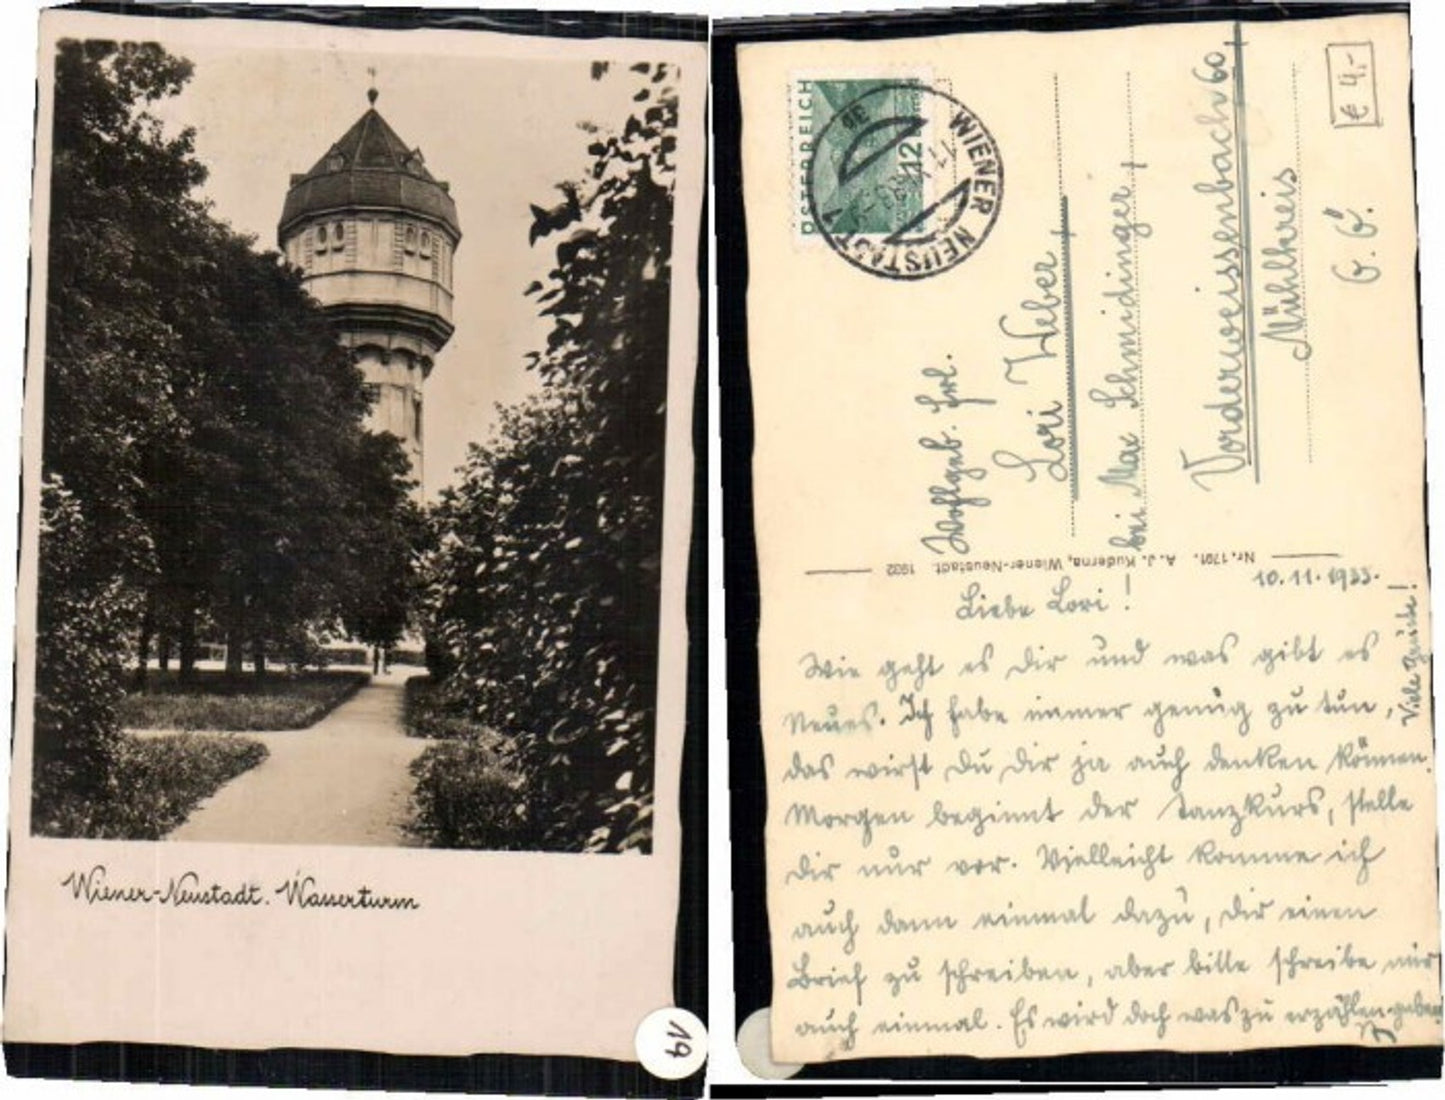 Wiener-Neustadt. Wasserturm
19
ÖSTERREICH
12
WIENER NEUSTADT 1
€ 4,-
Wohlgeb. Frl.
Lori Weber,
bei Max Schmidinger,
Vorderweissenbach 60,
Mühlkreis
O. Ö.
Nr. 1791. A. J. Kuderna, Wiener-Neustadt. 1932
10.11.1933.
Liebe Lori!
Wie geht es Dir und was gibt es
Neues. Ich habe immer genug zu tun,
das wirst Du Dir ja auch denken können.
Morgen beginnt der Tanzkurs, stelle
Dir nur vor. Vielleicht komme ich
auch dann einmal dazu, Dir einen
Brief zu schreiben, aber bitte schreibe mir
auch einmal. Es wird doch was zu erzählen geben
Viele Grüße!